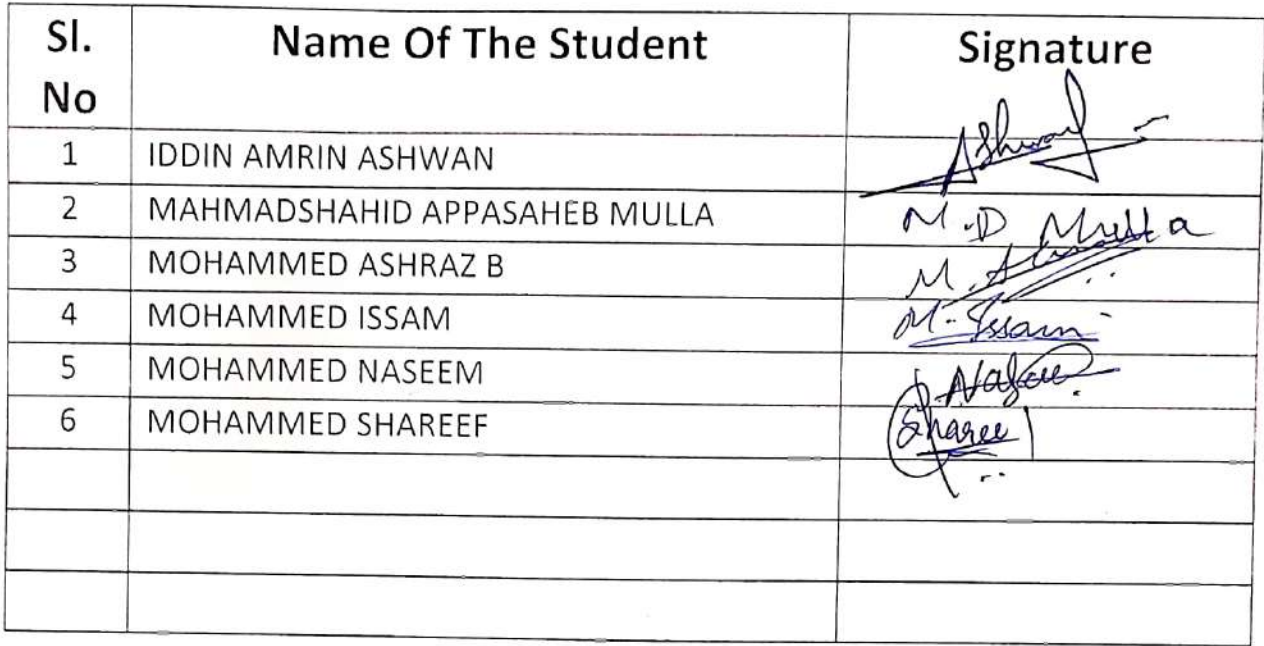 Sl. No Name Of The Student Signature
1 IDDIN AMRIN ASHWAN Ashwan
2 MAHMADSHAHID APPASAHEB MULLA M.D Mulla
3 MOHAMMED ASHRAZ B M.
4 MOHAMMED ISSAM M. Issam
5 MOHAMMED NASEEM
6 MOHAMMED SHAREEF Sharee